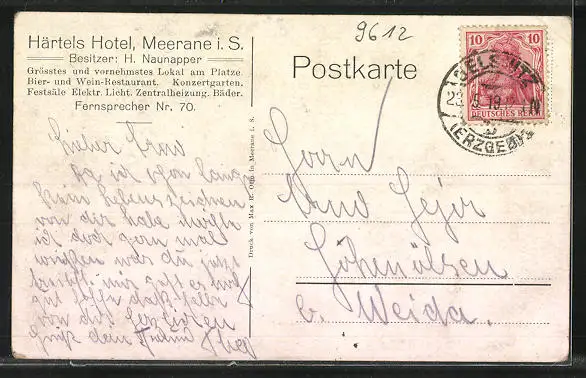 Härtels Hotel, Meerane i. S.
Besitzer: H. Naunapper
Grösstes und vornehmstes Lokal am Platze
Bier- und Wein-Restaurant. Konzertgarten.
Festsäle Elektr. Licht. Zentralheizung. Bäder.
Fernsprecher Nr. 70.
9612
Postkarte
10 10
DEUTSCHES REICH
(ERZGEB.)
Druck von Max R. Opp in Meerane i. S.
Lieber
Da ich schon lange
kein Lebenszeichen
von dir habe möchte
ich doch gern mal
was du jetzt
mir geht es noch
gut
von dir herzlichen
Gruß dein Freund
Herrn
Geyer
Hohenölsen
b. Weida.